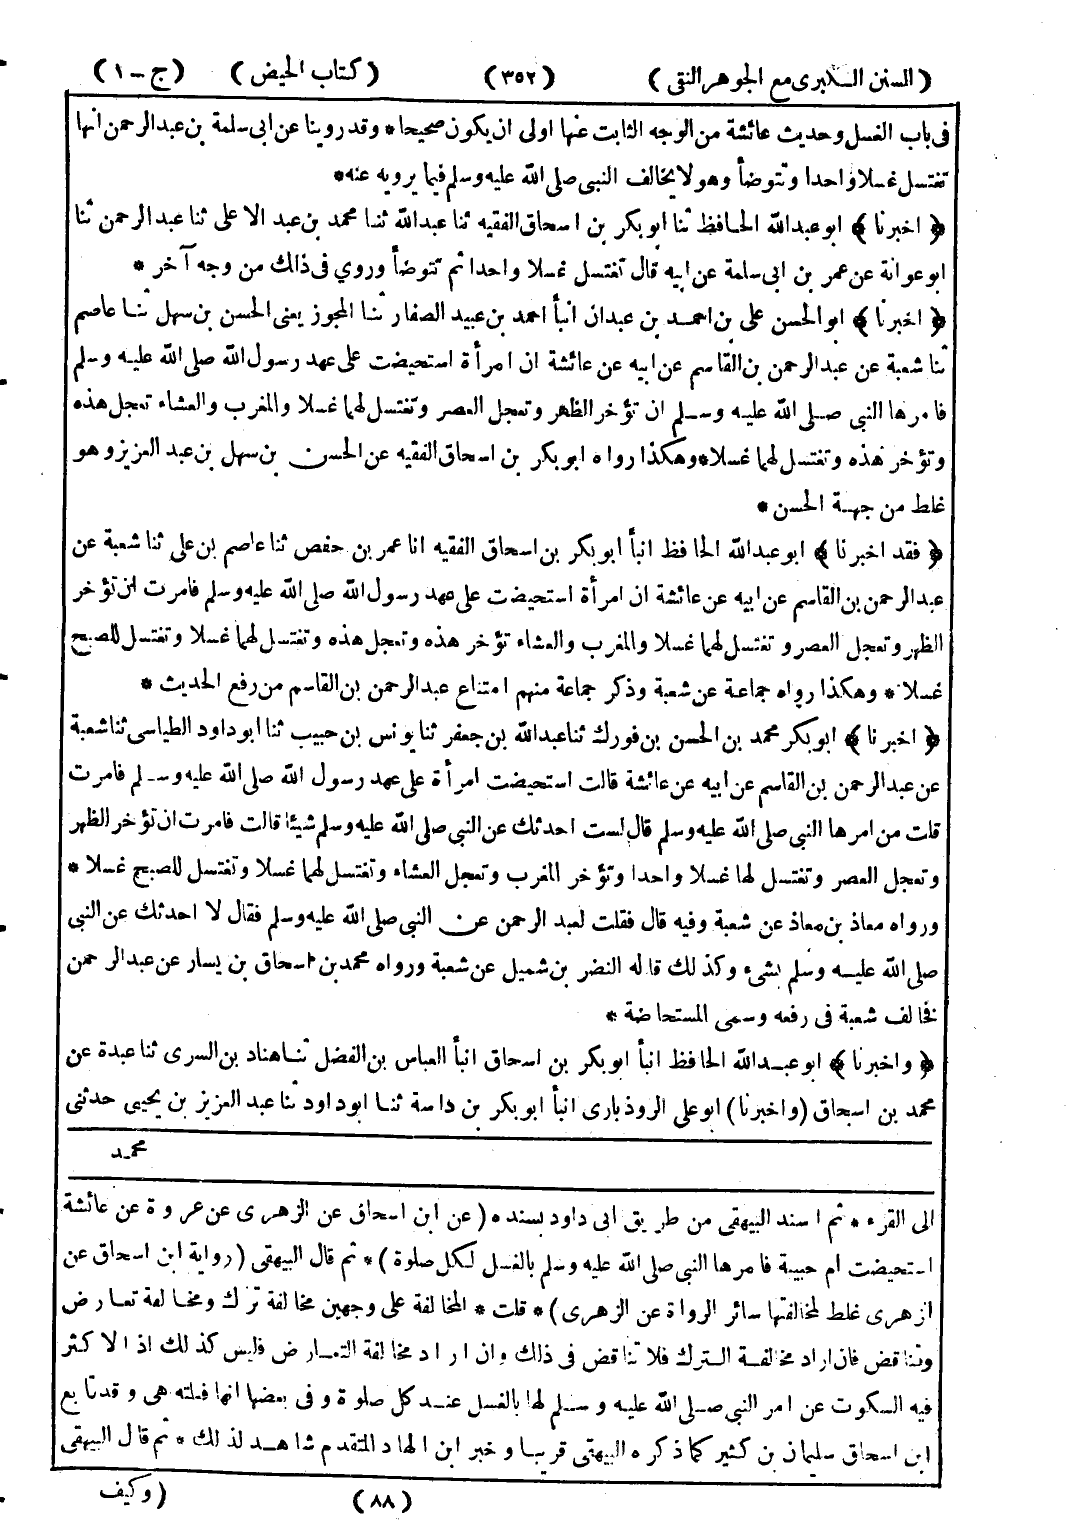 ( السنن الكبرى مع الجوهر النقى ) ( ٣٥٢ ) ( كتاب الحيض ) ( ج - ١ )
فى باب الغسل وحديث عائشة من الوجه الثابت عنها اولى ان يكون صحيحا * وقد روينا عن ابى سلمة بن عبد الرحمن انها
تغتسل غسلا واحدا وتتوضأ وهو لا يخالف النبى صلى الله عليه وسلم فيما يرويه عنه *
﴿ اخبرنا ﴾ ابو عبد الله الحافظ ثنا ابو بكر بن اسحاق الفقيه ثنا عبد الله ثنا محمد بن عبد الاعلى ثنا عبد الرحمن ثنا
ابو عوانة عن عمر بن ابى سلمة عن ابيه قال تغتسل غسلا واحدا ثم تتوضأ وروي فى ذالك من وجه آخر *
﴿ اخبرنا ﴾ ابو الحسن على بن احمد بن عبدان انبأ احمد بن عبيد الصفار ثنا المجوز يعنى الحسن بن سهل ثنا عاصم
ثنا شعبة عن عبد الرحمن بن القاسم عن ابيه عن عائشة ان امرأة استحيضت على عهد رسول الله صلى الله عليه وسلم
فامرها النبى صلى الله عليه وسلم ان تؤخر الظهر وتعجل العصر وتغتسل لهما غسلا والمغرب والعشاء تعجل هذه
وتؤخر هذه وتغتسل لهما غسلا * وهكذا رواه ابو بكر بن اسحاق الفقيه عن الحسن بن سهل بن عبد العزيز وهو
غلط من جهة الحسن *
﴿ فقد اخبرنا ﴾ ابو عبد الله الحافظ انبأ ابو بكر بن اسحاق الفقيه انا عمر بن حفص ثنا عاصم بن على ثنا شعبة عن
عبد الرحمن بن القاسم عن ابيه عن عائشة ان امرأة استحيضت على عهد رسول الله صلى الله عليه وسلم فامرت ان تؤخر
الظهر وتعجل العصر و تغتسل لهما غسلا والمغرب والعشاء تؤخر هذه وتعجل هذه وتغتسل لهما غسلا وتغتسل للصبح
غسلا * وهكذا رواه جماعة عن شعبة وذكر جماعة منهم امتناع عبد الرحمن بن القاسم من رفع الحديث *
﴿ اخبرنا ﴾ ابو بكر محمد بن الحسن بن فورك ثنا عبد الله بن جعفر ثنا يونس بن حبيب ثنا ابو داود الطيالسى ثنا شعبة
عن عبد الرحمن بن القاسم عن ابيه عن عائشة قالت استحيضت امرأة على عهد رسول الله صلى الله عليه وسلم فامرت
قلت من امرها النبى صلى الله عليه وسلم قال لست احدثك عن النبى صلى الله عليه وسلم شيئا قالت فامرت ان تؤخر الظهر
وتعجل العصر وتغتسل لها غسلا واحدا وتؤخر المغرب وتعجل العشاء وتغتسل لهما غسلا وتغتسل للصبح غسلا *
ورواه معاذ بن معاذ عن شعبة وفيه قال فقلت لعبد الرحمن عن النبى صلى الله عليه وسلم فقال لا احدثك عن النبى
صلى الله عليه وسلم بشىء وكذلك قاله النضر بن شميل عن شعبة ورواه محمد بن اسحاق بن يسار عن عبد الرحمن
فخالف شعبة فى رفعه وسمى المستحاضة *
﴿ واخبرنا ﴾ ابو عبد الله الحافظ انبأ ابو بكر بن اسحاق انبأ العباس بن الفضل ثنا هناد بن السرى ثنا عبدة عن
محمد بن اسحاق ( واخبرنا ) ابو على الروذبارى انبأ ابو بكر بن داسة ثنا ابو داود ثنا عبد العزيز بن يحيى حدثنى
محمد
الى القرء * ثم اسند البيهقى من طريق ابى داود بسنده ( عن ابن اسحاق عن الزهرى عن عروة عن عائشة
استحيضت ام حبيبة فامرها النبى صلى الله عليه وسلم بالغسل لكل صلوة ) * ثم قال البيهقى ( رواية ابن اسحاق عن
ازهرى غلط لمخالفتها سائر الرواة عن الزهرى ) * قلت * المخالفة على وجهين مخالفة ترك ومخالفة تعارض
وتناقض فان اراد مخالفة الترك فلا تناقض فى ذلك وان اراد مخالفة التعارض فليس كذلك اذ الاكثر
فيه السكوت عن امر النبى صلى الله عليه وسلم لها بالغسل عند كل صلوة وفى بعضها انها فعلته هى وقد تابع
ابن اسحاق سليمان بن كثير كما ذكره البيهقى قريبا وخبر ابن الهاد المتقدم شاهد لذلك * ثم قال البيهقى
( ٨٨ ) ( وكيف